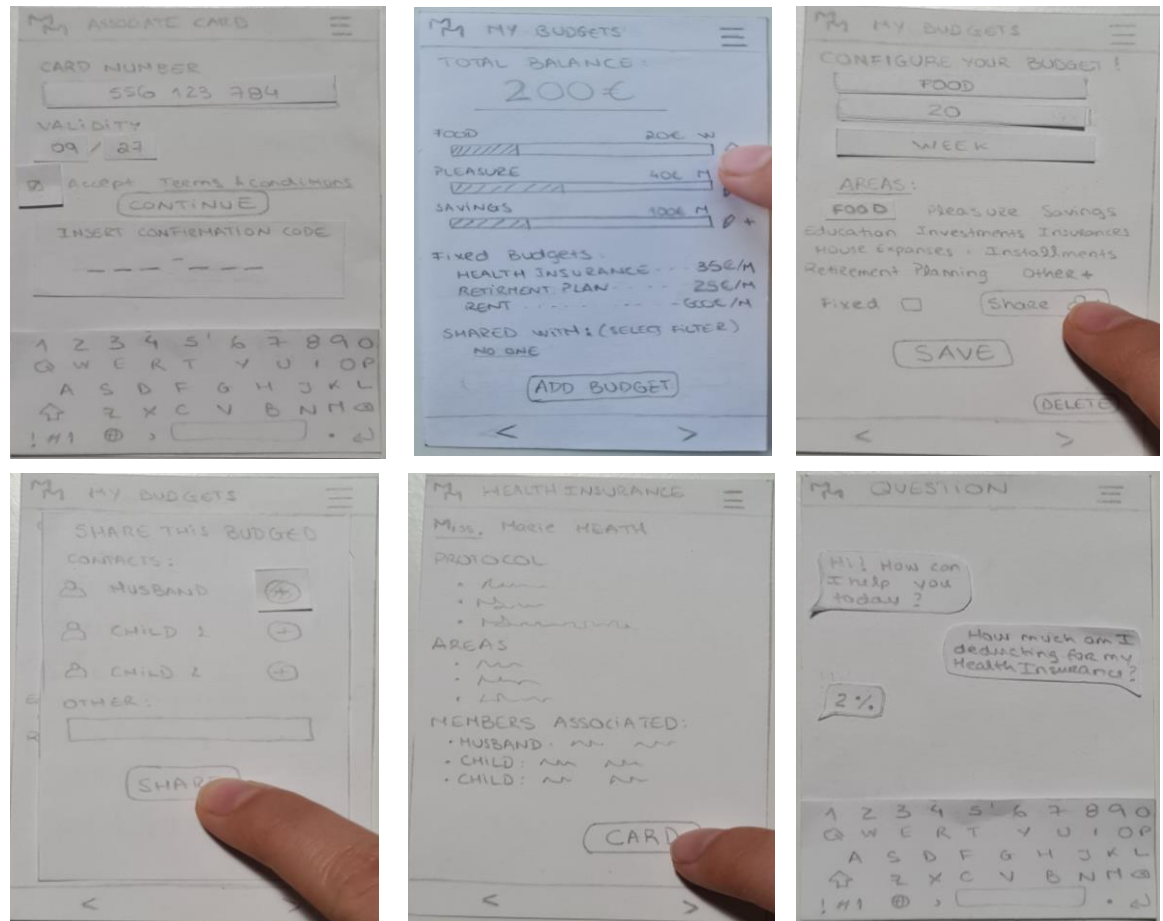 ASSOCIATE CARD
CARD NUMBER
556 123 784
VALIDITY
09 / 27
Accept Teerms & conditions
CONTINUE
INSERT CONFIRMATION CODE
1 2 3 4 5 6 7 8 9 0
Q W E R T Y U I O P
A S D F G H J K L
Z X C V B N M
! #1 , .
MY BUDGETS
TOTAL BALANCE:
200€
FOOD 20€ W
PLEASURE 40€ M
SAVINGS 100€ M
+
Fixed Budgets
HEALTH INSURANCE ... 35€/M
RETIRMENT PLAN ..... 25€/M
RENT ........ 600€/M
SHARED WITH: (SELECT FILTER)
NO ONE
ADD BUDGET
< >
MY BUDGETS
CONFIGURE YOUR BUDGET !
FOOD
20
WEEK
AREAS:
FOOD Pleasure Savings
Education Investments Insurances
House Expanses . Installments
Retirement Planning Other +
Fixed Share
SAVE
DELETE
< >
MY BUDGETS
SHARE THIS BUDGED
CONTACTS:
HUSBAND
CHILD 1 +
CHILD 2 +
OTHER:
SHARE
<
HEALTH INSURANCE
Miss. Marie HEATH
PROTOCOL
AREAS
MEMBERS ASSOCIATED:
• HUSBAND:
• CHILD:
• CHILD:
CARD
< >
QUESTION
Hi! How can
I help you
today?
How much am I
deducting for my
Health Insurance?
2%
1 2 3 4 5 6 7 8 9 0
Q W E R T Y U I O P
A S D F G H J K L
Z X C V B N M
! #1 , .